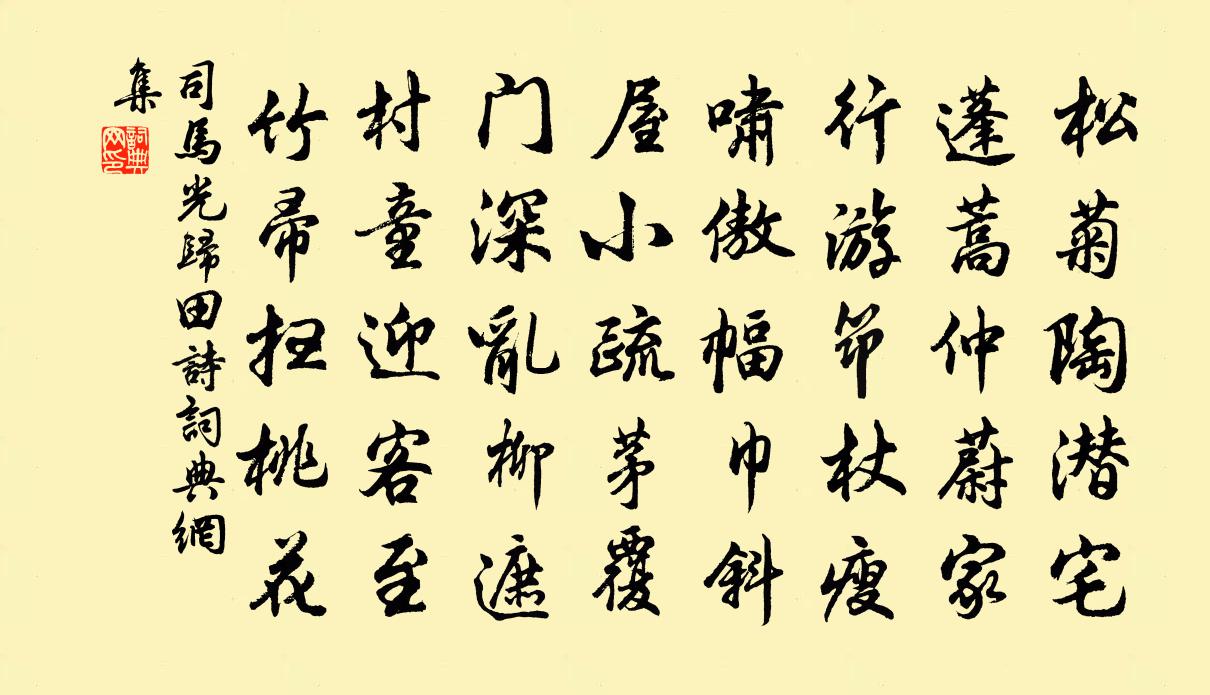 松菊陶潛宅
蓬蒿仲蔚家
行游笻杖瘦
嘯傲幅巾斜
屋小疏茅覆
門深亂柳遮
村童迎客至
竹帚掃桃花
司馬光歸田詩詞典網
集
詞典網印